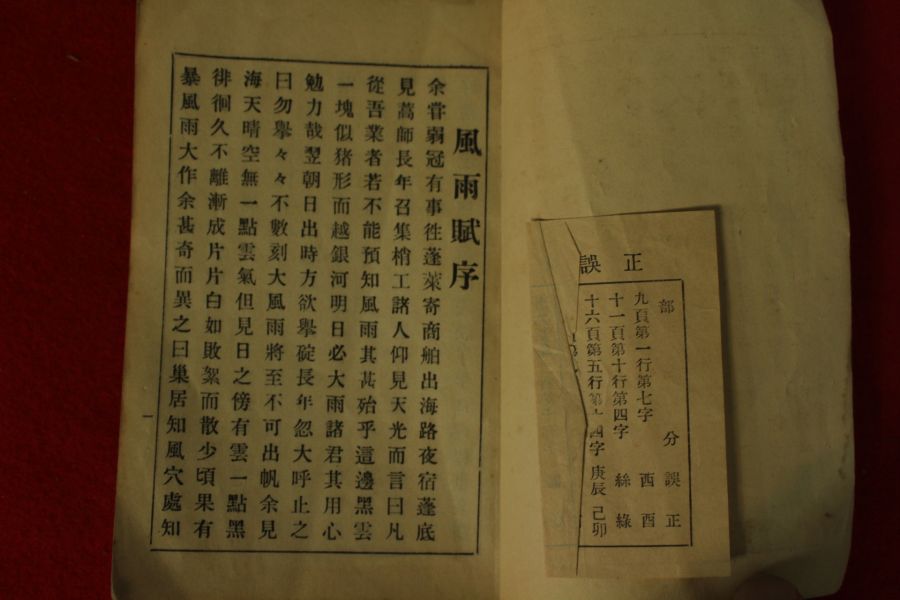 正誤
部分 誤 正
九頁第一行第七字 西 酉
十一頁第十行第四字 絲 綠
十六頁第五行第十四字 庚辰 己卯
風雨賦序
余甞弱冠有事徃蓬萊寄商舶出海路夜宿蓬底
見蒿師長年召集梢工諸人仰見天光而言曰凡
從吾業者若不能預知風雨其甚殆乎這邊黑雲
一塊似猪形而越銀河明日必大雨諸君其用心
勉力哉翌朝日出時方欲擧碇長年忽大呼止之
曰勿擧々々不數刻大風雨將至不可出帆余見
海天晴空無一點雲氣但見日之傍有雲一點黑
徘徊久不離漸成片片白如敗絮而散少頃果有
暴風雨大作余甚奇而異之曰巢居知風穴處知
一